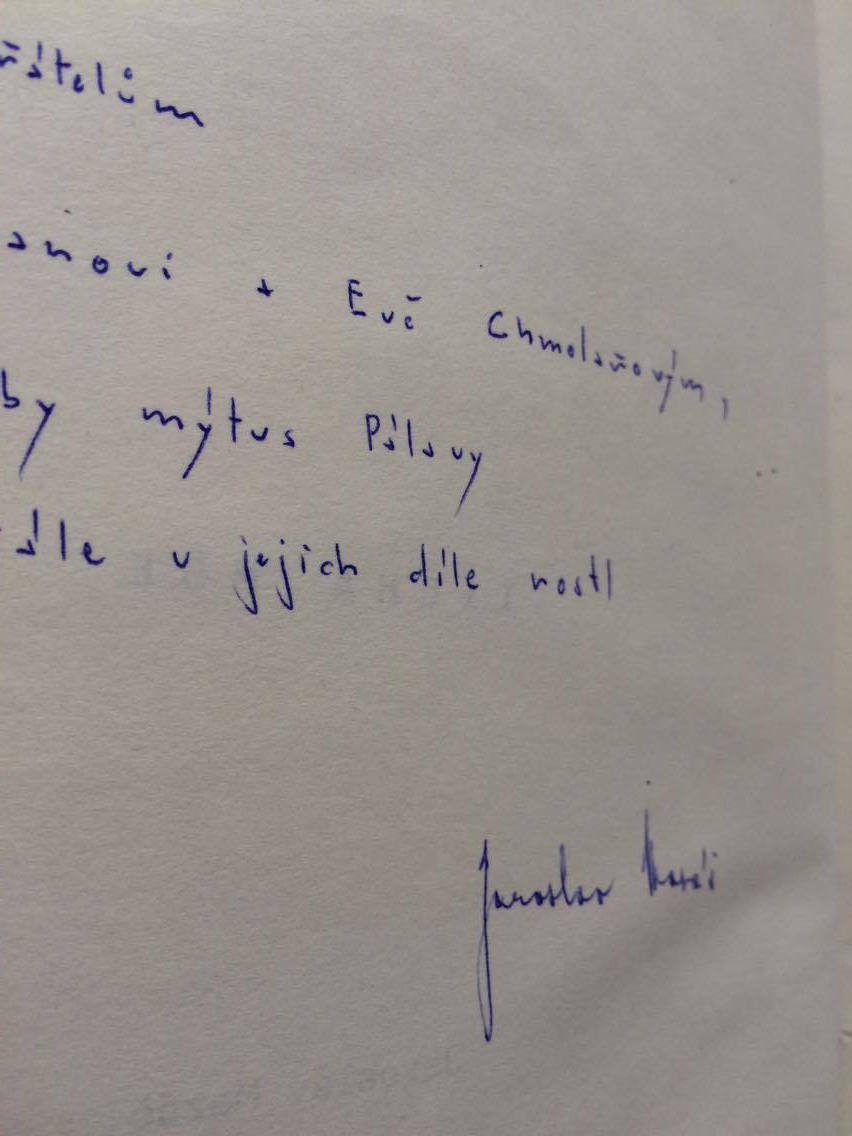 řátelům
anovi + Evě Chmelařovým,
by mýtus Pálavy
ále v jejich díle rostl
Jaroslav